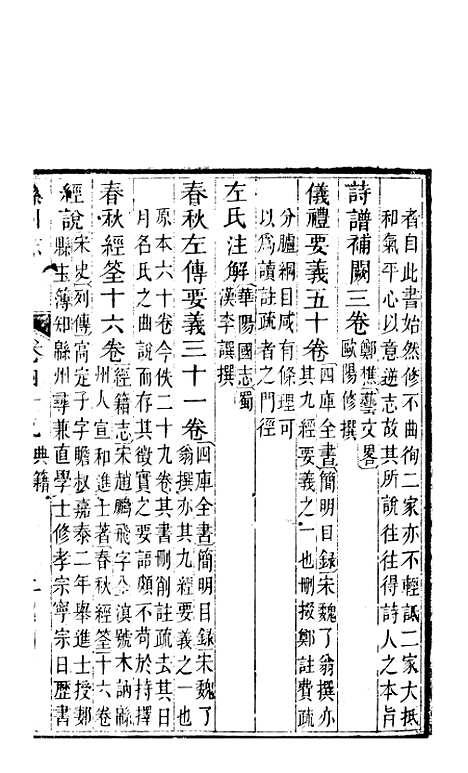 者自此書始然修不曲徇二家亦不輕詆二家大抵
和氣平心以意逆志故其所說往往得詩人之本旨
詩譜補闕三卷 鄭樵藝文畧
歐陽修撰
儀禮要義五十卷 四庫全書簡明目録宋魏了翁撰亦
其九經要義之一也刪掇鄭註賈疏
分臚綱目咸有條理可
以爲讀註疏者之門徑
左氏注解 華陽國志蜀
漢李譔撰
春秋左傳要義三十一卷 四庫全書簡明目録宋魏了
翁撰亦其九經要義之一也
原本六十卷今佚二十九卷其書刪削註疏去其日
月名氏之曲說而存其徵實之要語頗不苟於持擇
春秋經筌十六卷 經籍志宋趙鵬飛字企溟號木訥緜
州人宣和進士著春秋經筌十六卷
經說 宋史列傳高定子字瞻叔嘉泰二年舉進士授郪
縣主簿知緜州尋兼直學士修孝宗寧宗日歷書
卷四十九 典籍